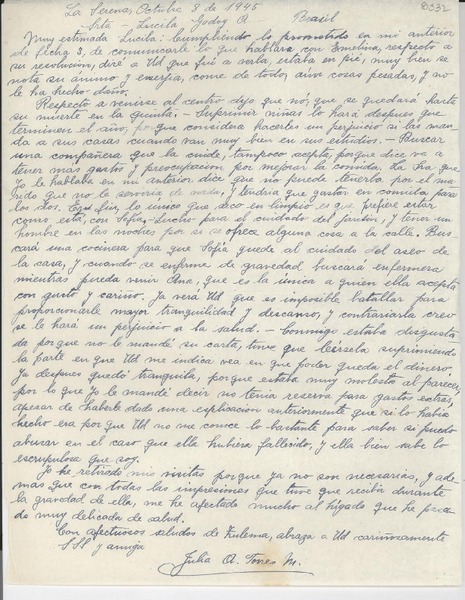 La Serena, Octubre 8 de 1945
Srta. Lucila Godoy A. Brasil
Muy estimada Lucila: Cumpliendo lo prometido en mi anterior
de fecha 3, de comunicarle lo que hablara con Emelina, respecto a
su resolución, diré a Ud que fuí a verla, estaba en pié, muy bien se
nota su ánimo y energía, come de todo, aún cosas pesadas, y no
le ha hecho daño.
Respecto a venirse al centro dijo que nó, que se quedará hasta
su muerte en la Quinta. - Suprimir niñas lo hará después que
terminen el año, porque considera hacerles un perjuicio si las man-
da a sus casas cuando van muy bien en sus estudios. - Buscar
una compañera que la cuide, tampoco acepta, porque dice va a
tener más gastos y preocupación por mejorar la comida. La Sra. que
yo le hablaba en mi anterior dice que no puede tenerla por el ma-
rido que no le serviría de nada, y tendría que gastar en comida para
los dos. En fin, lo único que saco en limpio es que prefiere estar
como está, con Sofía, Lucho para el cuidado del jardín, y tener un
hombre en las noches por si se ofrece alguna cosa a la calle. Bus-
cará una cocinera para que Sofía quede al cuidado del aseo de
la casa, y cuando se enferme de gravedad buscará enfermera
mientras pueda venir Ana, que es la única a quien ella acepta
con gusto y cariño. Ya verá Ud que es imposible batallar para
proporcionarle mayor tranquilidad y descanso, y contrariarla creo
se le hará un perjuicio a la salud. - Conmigo estaba disgusta-
da porque no le mandé su carta, tuve que leérsela suprimiendo
la parte en que Ud me indica vea en que poder queda el dinero.
Ya después quedó tranquila, porque estaba muy molesta al parecer
por lo que yo le mandé decir no tenía reserva para gastos extras,
apesar de haberle dado una esplicación anteriormente que si lo había
hecho era por que Ud no me conoce lo bastante para saber si puedo
abusar en el caso que ella hubiera fallecido, y ella bien sabe lo
escrupulosa que soy.
Yo he retirado mis visitas porque ya no son necesarias, y ade-
más que con todas las impresiones que tuve que recibir durante
la gravedad de ella, me ha afectado mucho al hígado que he pasa-
do muy delicada de salud.
Con afectuosos saludos de Zulema, abraza a Ud cariñosamente
SSS y amiga
Julia A. Torres M.